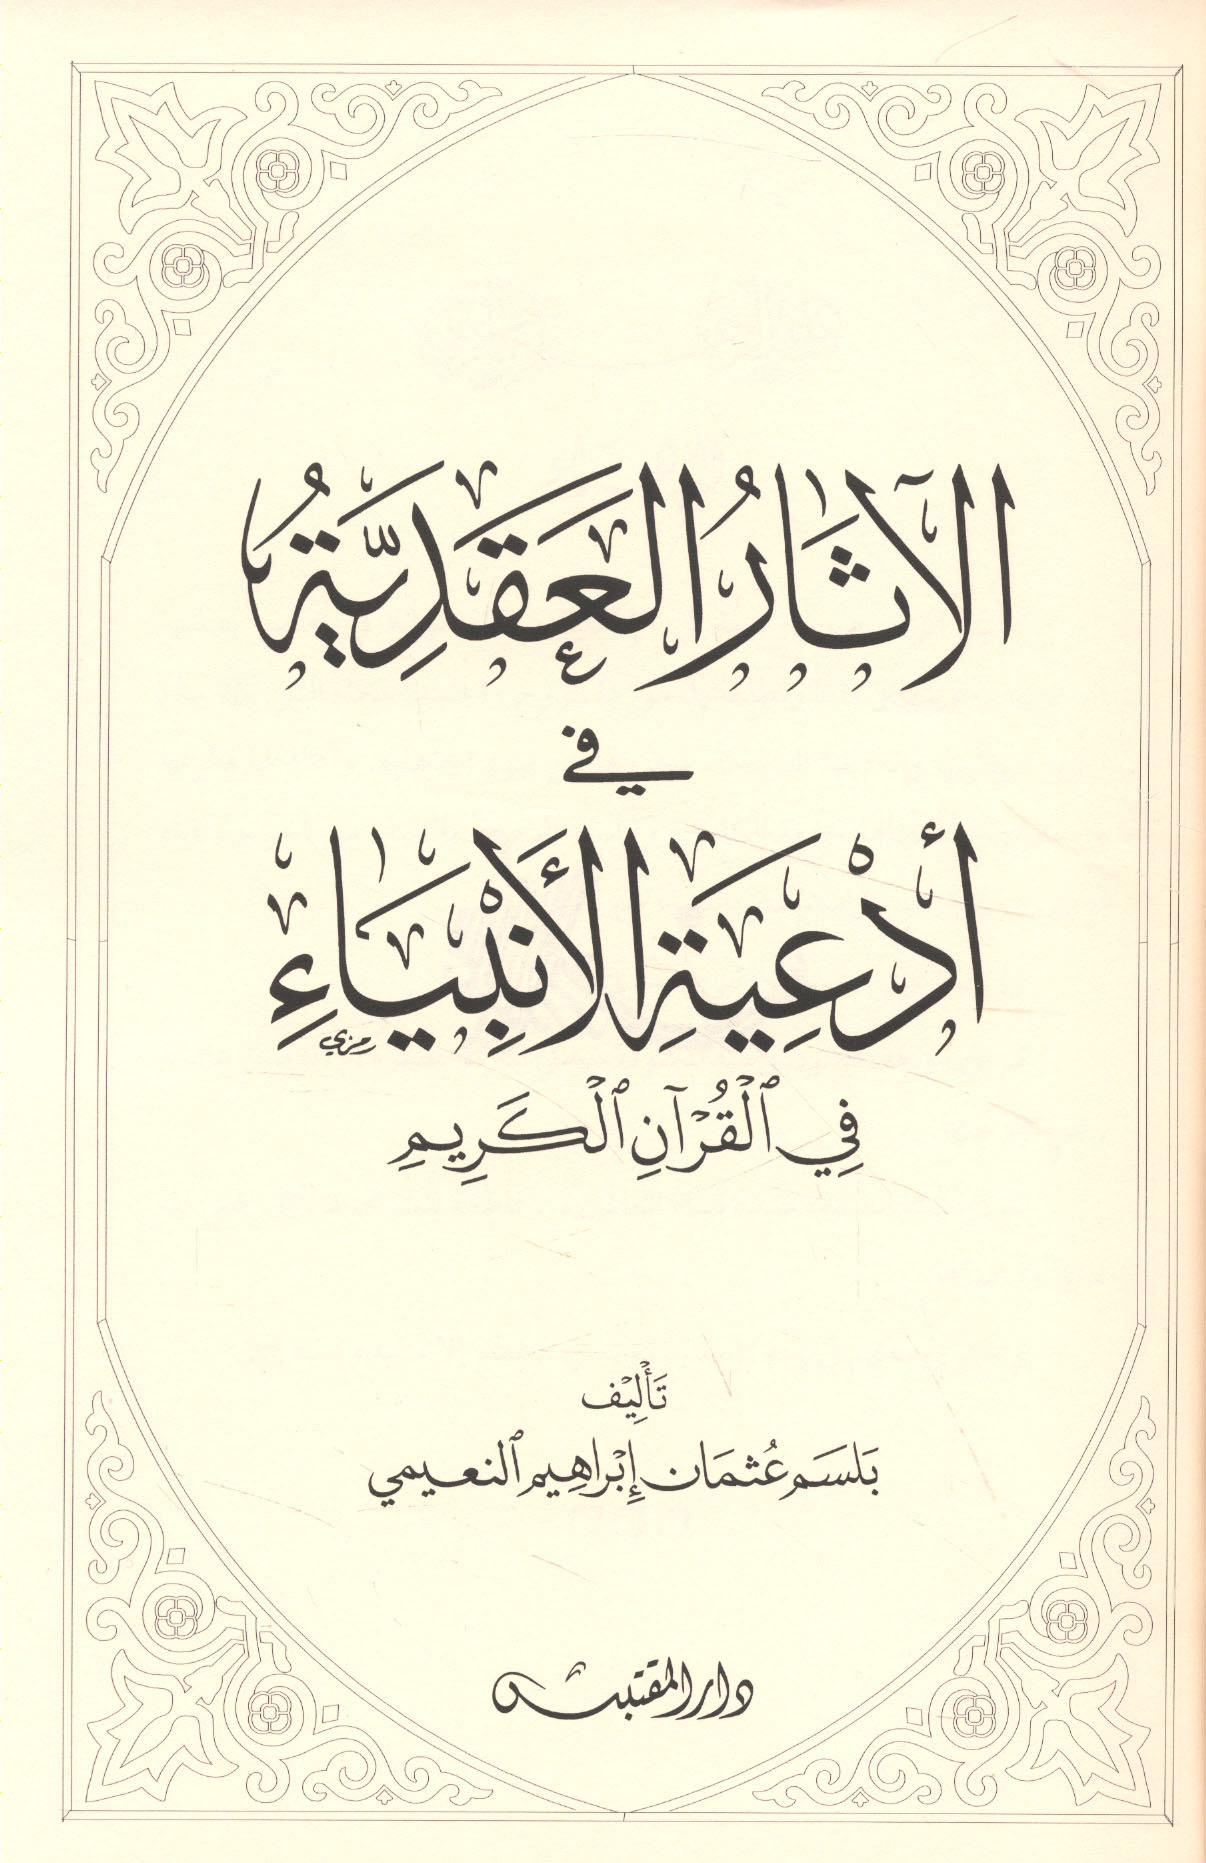 الآثَارُ العَقَدِيَّةُ
في
أَدْعِيَةِ الأَنْبِيَاءِ
رمزي
فِي ٱلْقُرْآنِ ٱلْكَرِيمِ
تَأْلِيْف
بَلسَم عُثمَان إِبْرَاهِيم ٱلنعيمي
دار المقتبس